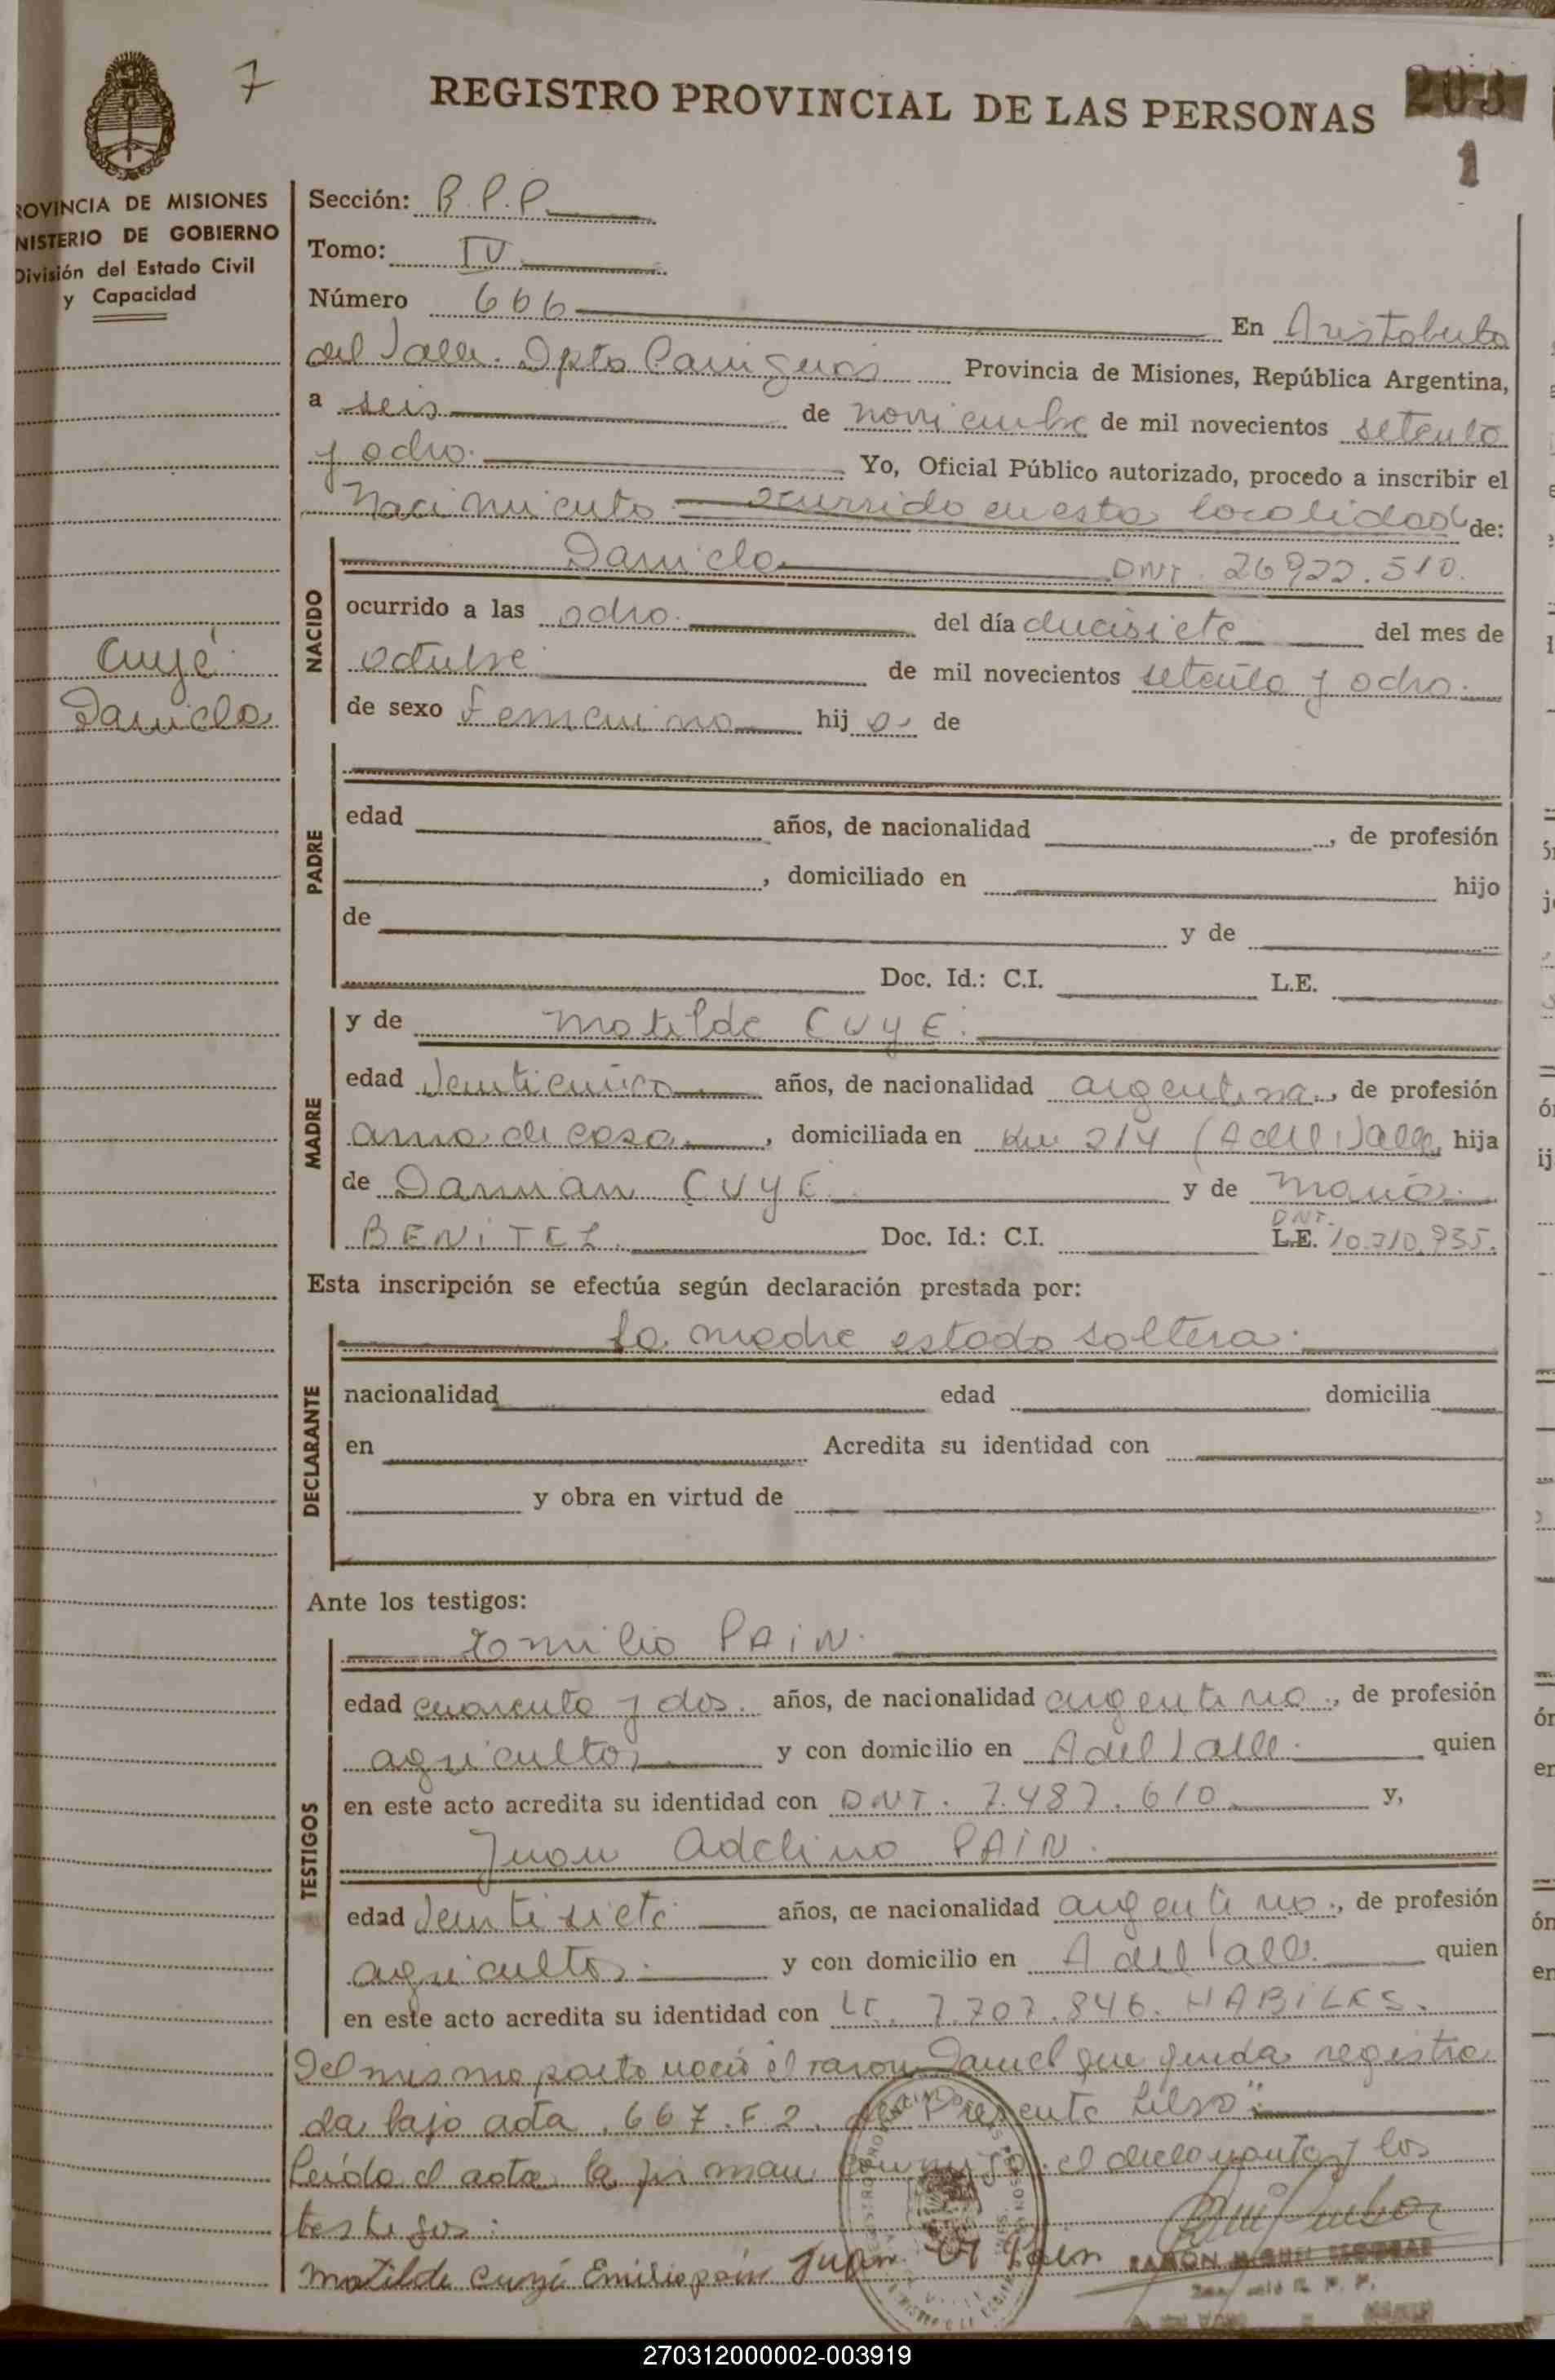 7
REGISTRO PROVINCIAL DE LAS PERSONAS
203
1
ROVINCIA DE MISIONES
NISTERIO DE GOBIERNO
División del Estado Civil
y Capacidad
Sección: R.P.P.
Tomo: IV
Número 666 En Aristobulo
del Valle. Dpto Cainguas Provincia de Misiones, República Argentina,
a seis de noviembre de mil novecientos setenta
y ocho. Yo, Oficial Público autorizado, procedo a inscribir el
Nacimiento ocurrido en esta localidad de:
Daniela DNI. 26922.510.
NACIDO
ocurrido a las ocho. del día diecisiete del mes de
octubre de mil novecientos setenta y ocho.
de sexo Femenino hij a de
Cuyé
Daniela
PADRE
edad años, de nacionalidad , de profesión
, domiciliado en hijo
de y de
Doc. Id.: C.I. L.E.
MADRE
y de Matilde CUYE.
edad Veinticinco años, de nacionalidad argentina., de profesión
ama de casa , domiciliada en km 214 (A del Valle, hija
de Damian CUYE y de Maria
BENITEZ. Doc. Id.: C.I. DNI. L.E. 10.710.935.
Esta inscripción se efectúa según declaración prestada por:
DECLARANTE
la madre estado soltera.
nacionalidad edad domicilia
en Acredita su identidad con
y obra en virtud de
Ante los testigos:
TESTIGOS
Emilio PAIN.
edad cuarenta y dos. años, de nacionalidad argentino., de profesión
agricultor y con domicilio en A del Valle. quien
en este acto acredita su identidad con DNI. 7.487.610 y,
Juan Adelino PAIN.
edad Veintisiete años, de nacionalidad argentino., de profesión
agricultor. y con domicilio en A del Valle. quien
en este acto acredita su identidad con LE. 7.707.846. HABILES.
Del mismo parto nació el varon Daniel que queda registra
da bajo acta 667. F 2. del Presente Libro"
Leída el acta la firman conmigo el declarante y los
testigos:
Matilde Cuyé Emilio pain Juan A Pain
RAMON MIGUEL
270312000002-003919